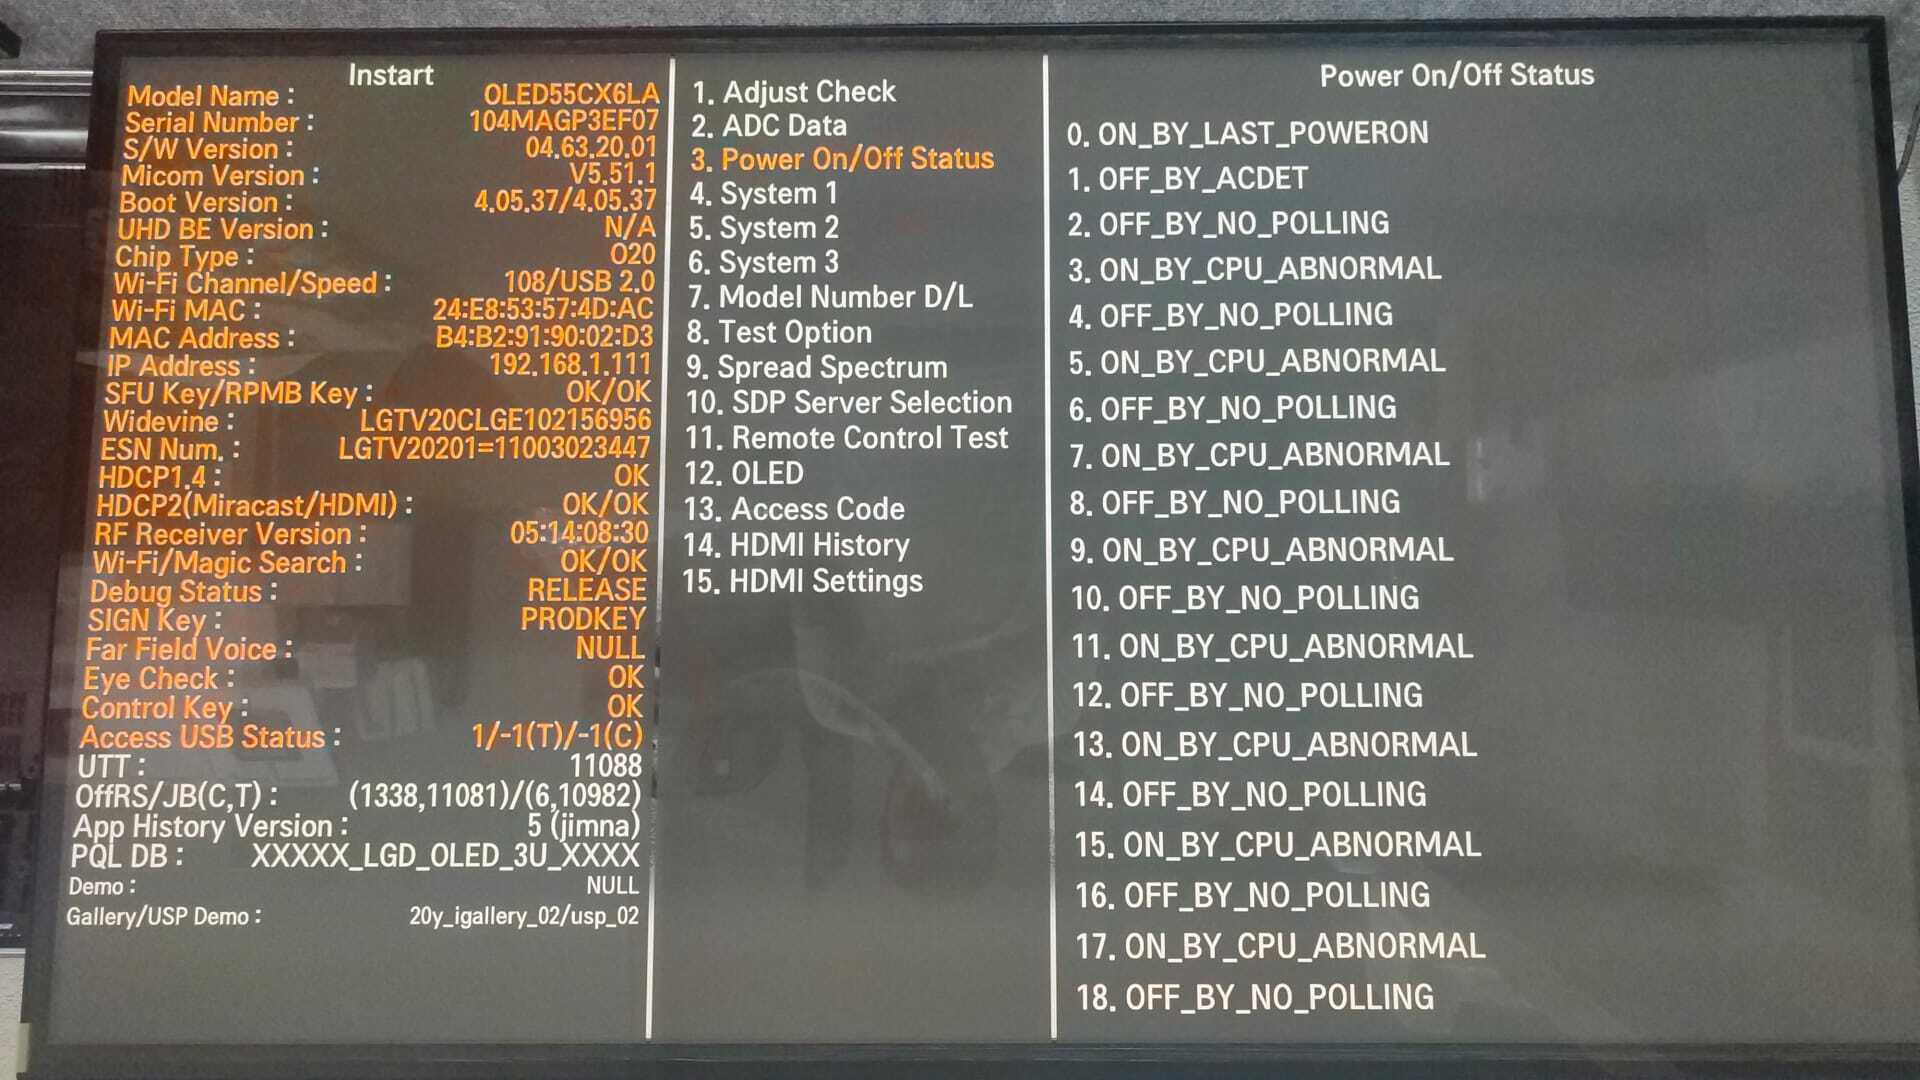 Instart
Model Name : OLED55CX6LA
Serial Number : 104MAGP3EF07
S/W Version : 04.63.20.01
Micom Version : V5.51.1
Boot Version : 4.05.37/4.05.37
UHD BE Version : N/A
Chip Type : O20
Wi-Fi Channel/Speed : 108/USB 2.0
Wi-Fi MAC : 24:E8:53:57:4D:AC
MAC Address : B4:B2:91:90:02:D3
IP Address : 192.168.1.111
SFU Key/RPMB Key : OK/OK
Widevine : LGTV20CLGE102156956
ESN Num. : LGTV20201=11003023447
HDCP1.4 : OK
HDCP2(Miracast/HDMI) : OK/OK
RF Receiver Version : 05:14:08:30
Wi-Fi/Magic Search : OK/OK
Debug Status : RELEASE
SIGN Key : PRODKEY
Far Field Voice : NULL
Eye Check : OK
Control Key : OK
Access USB Status : 1/-1(T)/-1(C)
UTT : 11088
OffRS/JB(C,T) : (1338,11081)/(6,10982)
App History Version : 5 (jimna)
PQL DB : XXXXX_LGD_OLED_3U_XXXX
Demo : NULL
Gallery/USP Demo : 20y_igallery_02/usp_02
1. Adjust Check
2. ADC Data
3. Power On/Off Status
4. System 1
5. System 2
6. System 3
7. Model Number D/L
8. Test Option
9. Spread Spectrum
10. SDP Server Selection
11. Remote Control Test
12. OLED
13. Access Code
14. HDMI History
15. HDMI Settings
Power On/Off Status
0. ON_BY_LAST_POWERON
1. OFF_BY_ACDET
2. OFF_BY_NO_POLLING
3. ON_BY_CPU_ABNORMAL
4. OFF_BY_NO_POLLING
5. ON_BY_CPU_ABNORMAL
6. OFF_BY_NO_POLLING
7. ON_BY_CPU_ABNORMAL
8. OFF_BY_NO_POLLING
9. ON_BY_CPU_ABNORMAL
10. OFF_BY_NO_POLLING
11. ON_BY_CPU_ABNORMAL
12. OFF_BY_NO_POLLING
13. ON_BY_CPU_ABNORMAL
14. OFF_BY_NO_POLLING
15. ON_BY_CPU_ABNORMAL
16. OFF_BY_NO_POLLING
17. ON_BY_CPU_ABNORMAL
18. OFF_BY_NO_POLLING